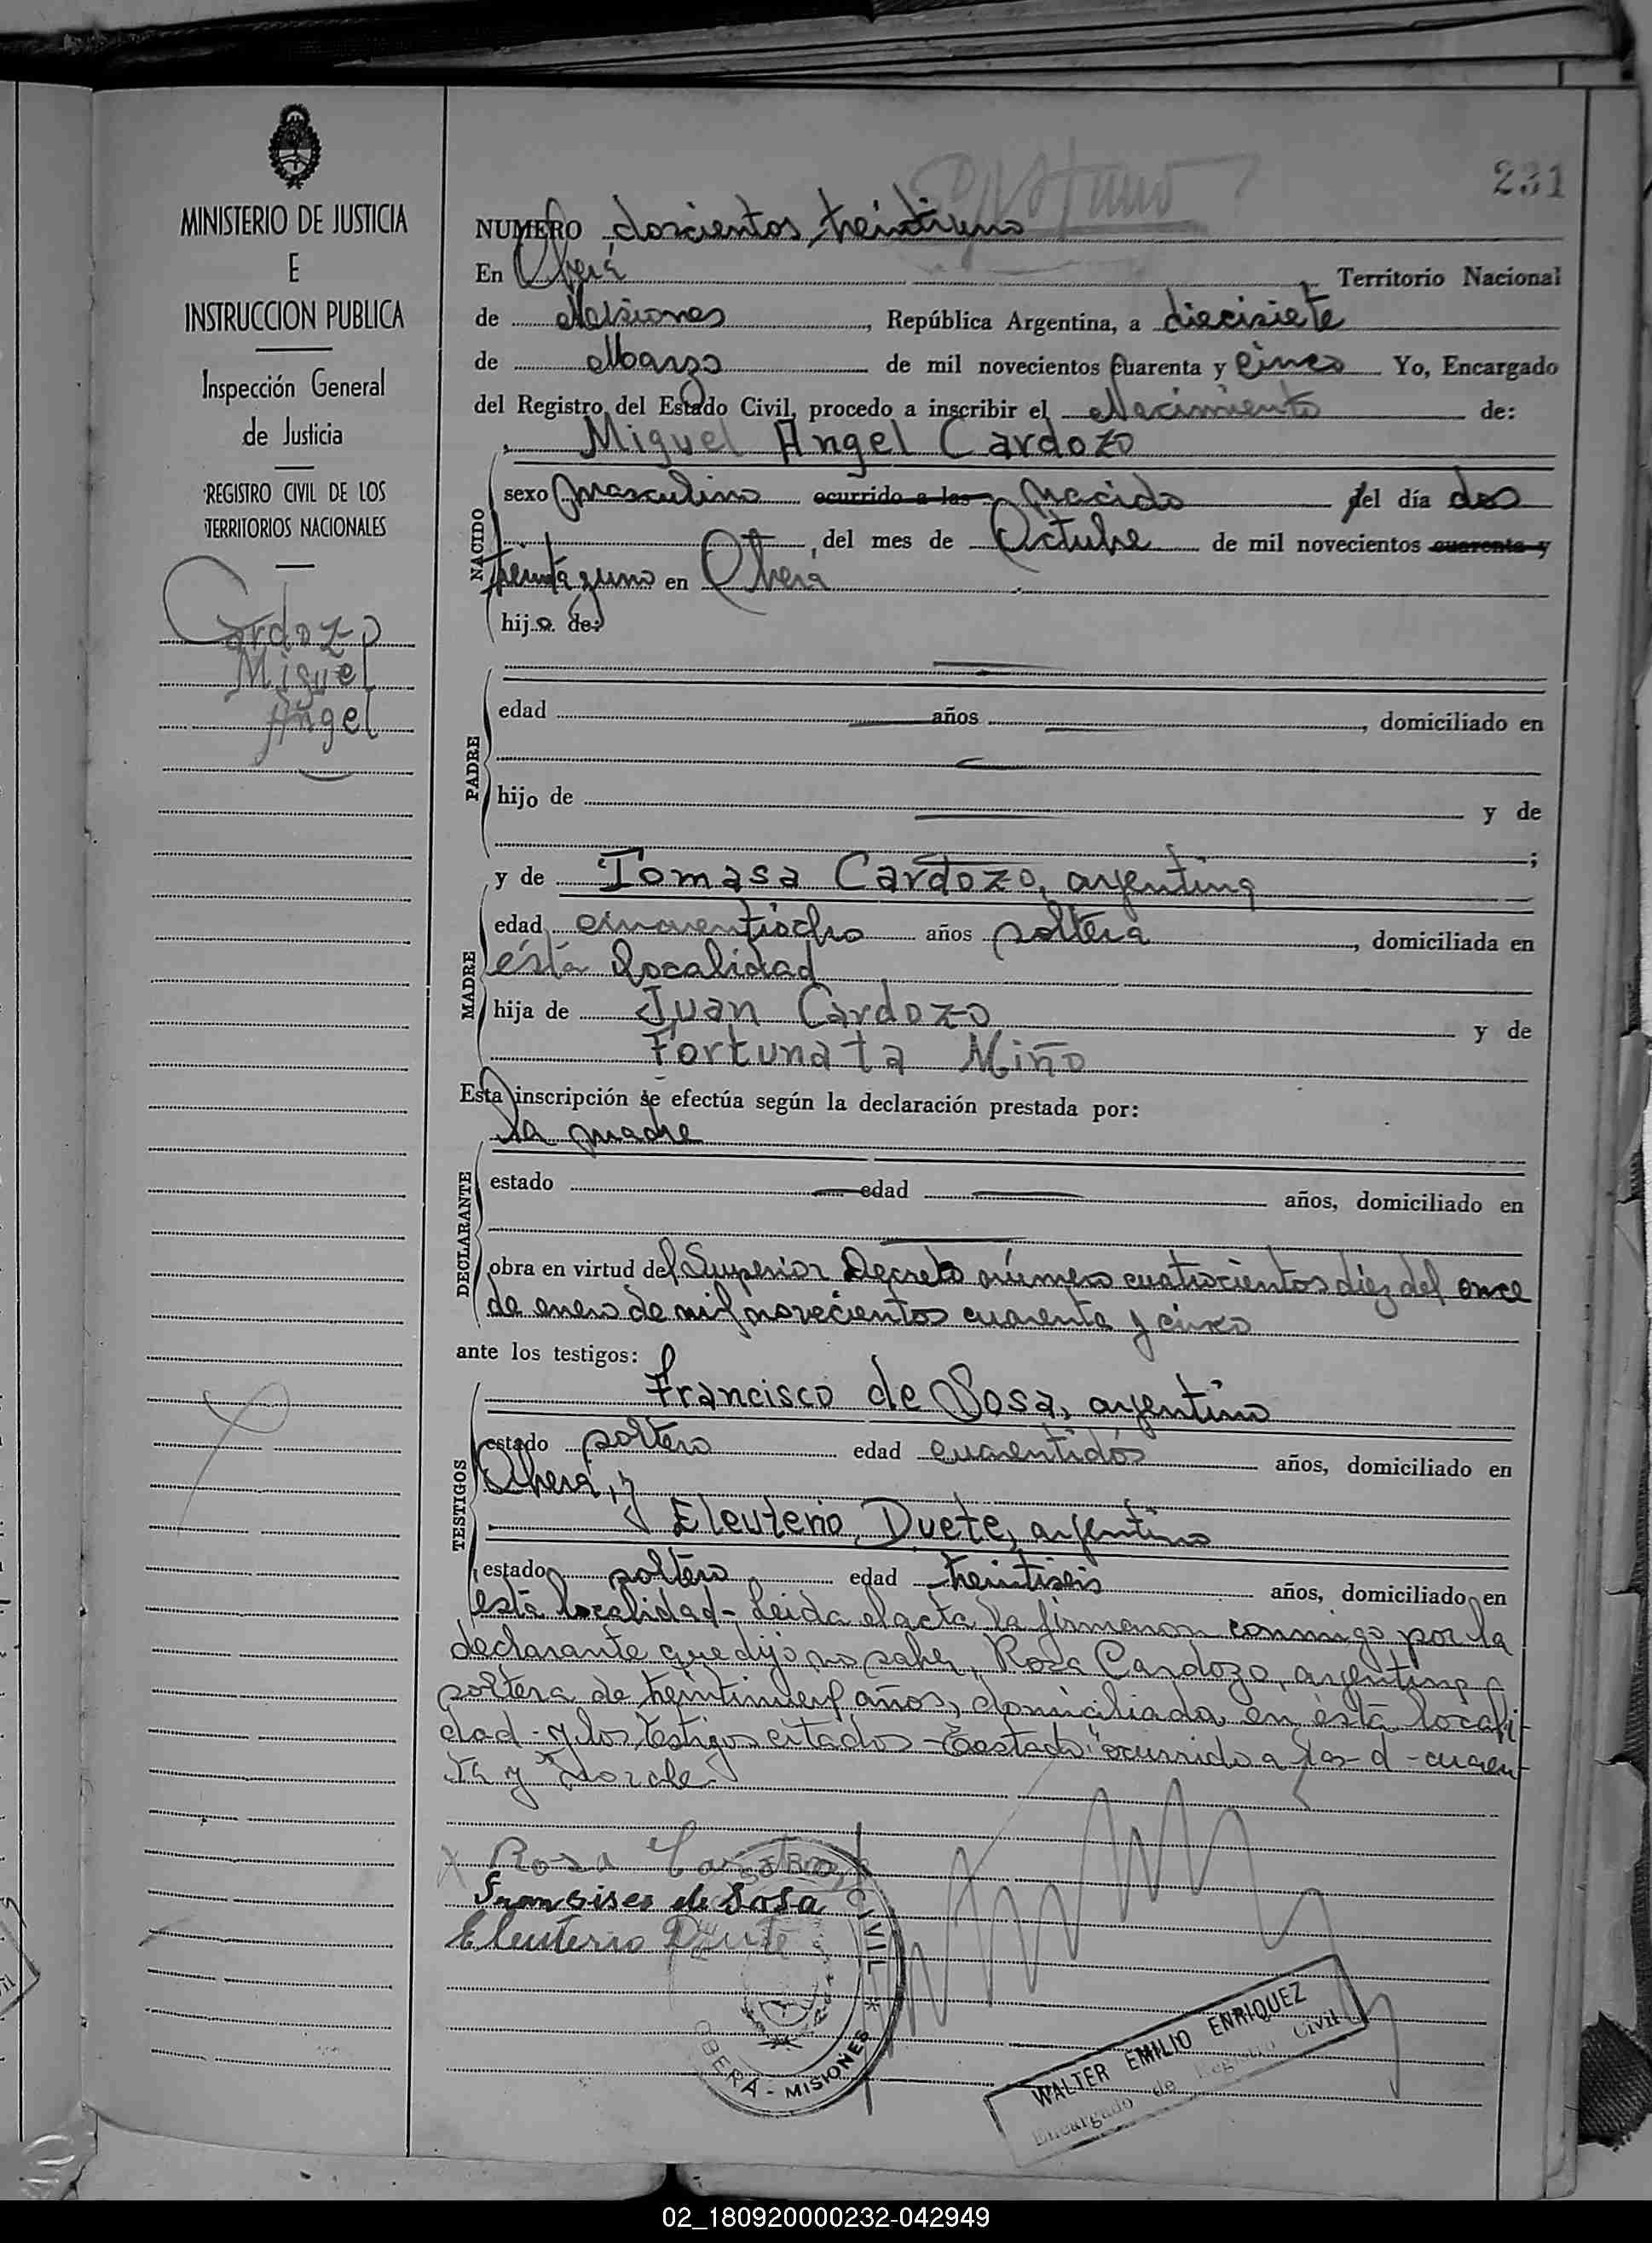 231
MINISTERIO DE JUSTICIA
E
INSTRUCCION PUBLICA
Inspección General
de Justicia
REGISTRO CIVIL DE LOS
TERRITORIOS NACIONALES
Cardozo
Miguel
Angel
NUMERO doscientos treintiuno
En Oberá Territorio Nacional
de Misiones, República Argentina, a diecisiete
de Marzo de mil novecientos cuarenta y cinco Yo, Encargado
del Registro del Estado Civil, procedo a inscribir el Nacimiento de:
Miguel Angel Cardozo
NACIDO
sexo masculino ocurrido a las nacido del día dos
del mes de Octubre de mil novecientos cuarenta y
treinta y uno en Oberá
hijo de:
PADRE
edad años, domiciliado en
hijo de y de
;
y de Tomasa Cardozo, argentina
MADRE
edad cincuentiocho años soltera, domiciliada en
ésta localidad
hija de Juan Cardozo y de
Fortunata Miño
Esta inscripción se efectúa según la declaración prestada por:
la madre
DECLARANTE
estado edad años, domiciliado en
obra en virtud del Superior Decreto número cuatrocientos diez del once
de enero de mil novecientos cuarenta y cinco
ante los testigos:
Francisco de Sosa, argentino
TESTIGOS
estado soltero edad cuarentidós años, domiciliado en
Oberá, y
Eleuterio Duete, argentino
estado soltero edad treintiseis años, domiciliado en
ésta localidad - Leida el acta la firmaron conmigo por la
declarante que dijo no saber, Rosa Cardozo, argentina
soltera de años, domiciliada en ésta locali-
dad - y los testigos citados - Testado: "ocurrido a las - d - cuaren-
ta y No vale
x Rosa Cardozo
Fransisco de Sosa
Eleuterio Duete
CIVIL * OBERA - MISIONES
WALTER EMILIO ENRIQUEZ
Encargado de Registro Civil
02_180920000232-042949